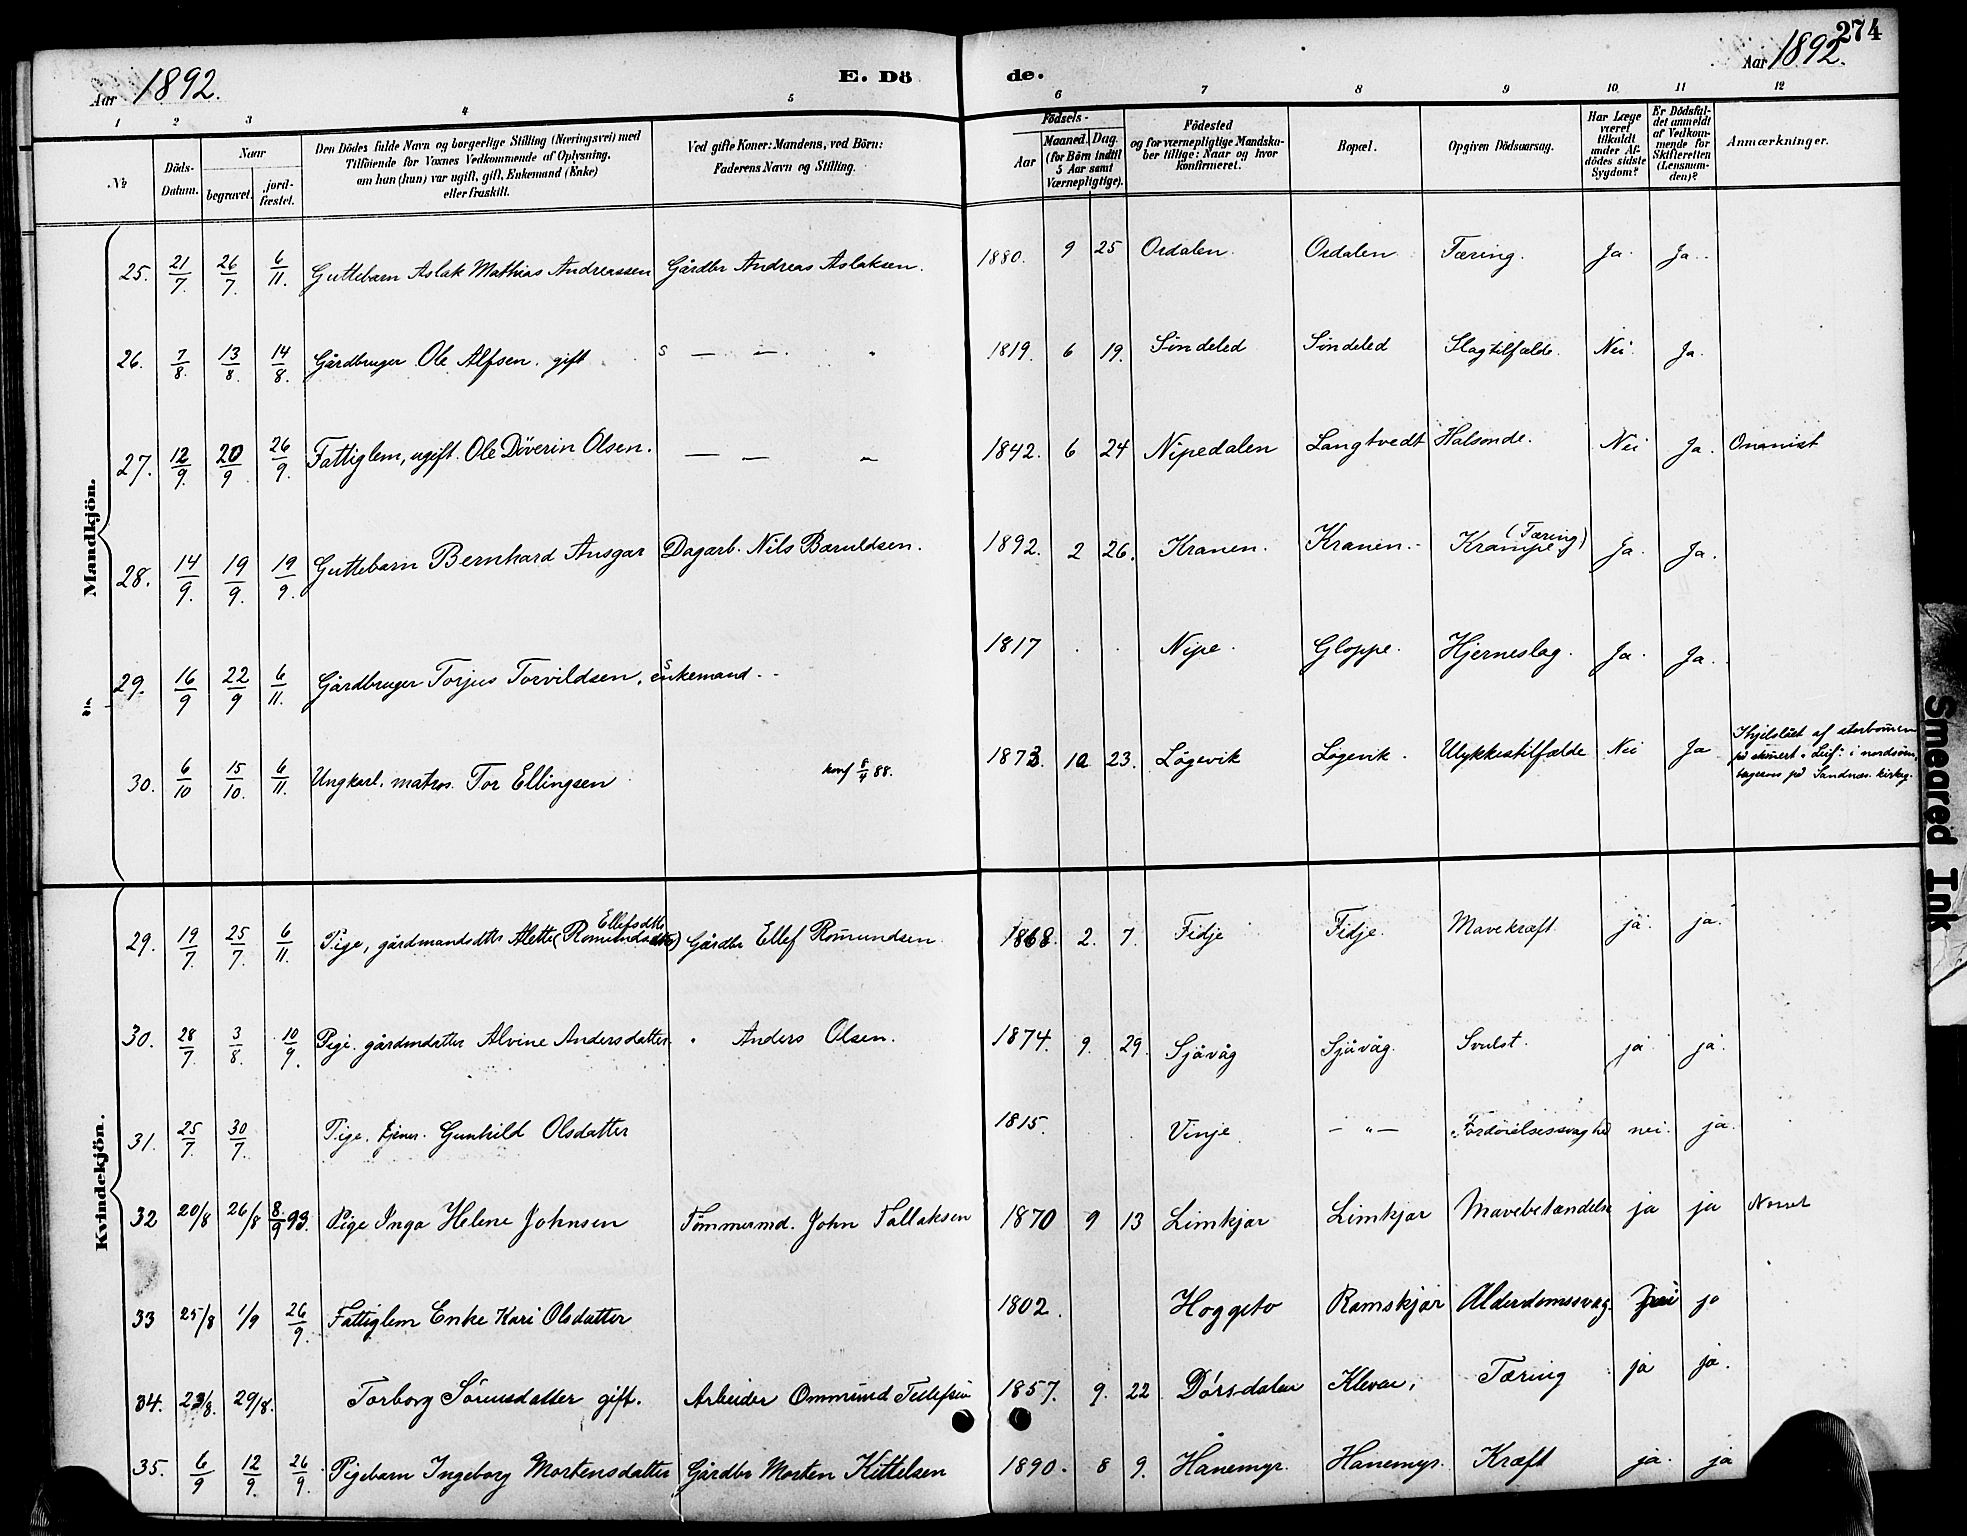 274
Aar 1892. E. Dö de. Aar 1892.
1 2 3 4 5 6 7 8 9 10. 11 12
№ Döds-Datum. Naar begravet. jord-fæstet. Den Dödes fulde Navn og borgerlige Stilling (Næringsvei) med Tilföiende for Voxnes Vedkommende af Oplysning, om han (hun) var ugift, gift, Enkemand (Enke) eller fraskilt. Ved gifte Koner: Mandens, ved Börn: Faderens Navn og Stilling. Födsels- Aar Maaned. Dag. (for Börn indtil 5 Aar samt Værnepligtige). Födested og for værnepligtige Mandskaber tillige: Naar og hvor konfirmeret. Bopæl. Opgiven Dödsaarsag. Har Læge været tilkaldt under Afdödes sidste Sygdom? Er Dödsfaldet anmeldt af Vedkommende for Skifteretten (Lensmanden)? Anmærkninger.
Mandkjön.
25. 21/7. 26/7. 6/11. Guttebarn Aslak Mathias Andreassen Gårdbr Andreas Aslaksen. 1880. 9 25 Ordalen. Ordalen Tæring. Ja. Ja.
26. 7/8. 13/8. 14/8. Gårdbruger Ole Alfsen. gift s — — " 1819. 6 19. Söndeled Söndeled Slagtilfælde. Nei. Ja.
27. 12/9. 20/9 26/9. Fattiglem, ugift. Ole Döverin Olsen. — — " 1842. 6 24 Nipedalen Langtvedt Halsonde. Nei Ja. Onanist
28. 14/9. 19/9. 19/9. Guttebarn Bernhard Ansgar Dagarb. Nils Baruldsen. 1892. 2 26. Kranen. Kranen. Krampe (Tæring) Ja. Ja.
29. 16/9 22/9 6/11. Gårdbruger Torjus Torvildsen, enkemand. 1817 Nipe. Gloppe. Hjerneslag. Ja. Ja.
30. 6/10 15/10. 6/11. Ungkarl. matros. Tor Ellingsen konf 8/4 88. 1873. 10 23. Lögevik Lögevik. Ulykkestilfælde Nei Ja Ihjelslået af storbommen på skonert "Leif" i nordsöen, begravet på Sandnæs kirkeg.
Kvindekjön.
29. 19/7. 25/7. 6/11. Pige, gårdmandsdtr Alette (Romundsdtr) Ellefsdtr Gårdbr Ellef Romundsen. 1868. 2. 7. Fidje Fidje. Mavekræft. ja. ja.
30. 28/7. 3/8. 10/9. Pige. gårdmdatter Alvine Andersdatter. " Anders Olsen. 1874. 9. 29. Sjåvåg Sjåvåg. Svulst. ja. ja.
31. 25/7. 30/7. Pige. tjener. Gunhild Olsdatter 1815. Vinje. — " — Fordöielsessvaghed nei. ja.
32 20/8 26/8 8/9 93. Pige Inga Helene Johnsen Tömmermd. John Tallaksen 1870 9 13 Limkjær Limkjær Mavebetændelse ja ja
33 25/8 1/9 26/9. Fattiglem Enke Kari Olsdatter 1802. Hoggeto Ramskjær Alderdomssvag. ja
34. 23/8. 29/8. Torborg Sörensdatter gift. Arbeider Ommund Tellefsen 1857. 9. 22 Dörsdalen Klevae, Tæring ja ja.
35. 6/9 12/9. 26/9. Pigebarn Ingeborg Mortensdatter Gårdbr Morten Kittelsen 1890. 8 9. Hanemyr. Hanemyr. Kræft ja. ja
Smeared Ink